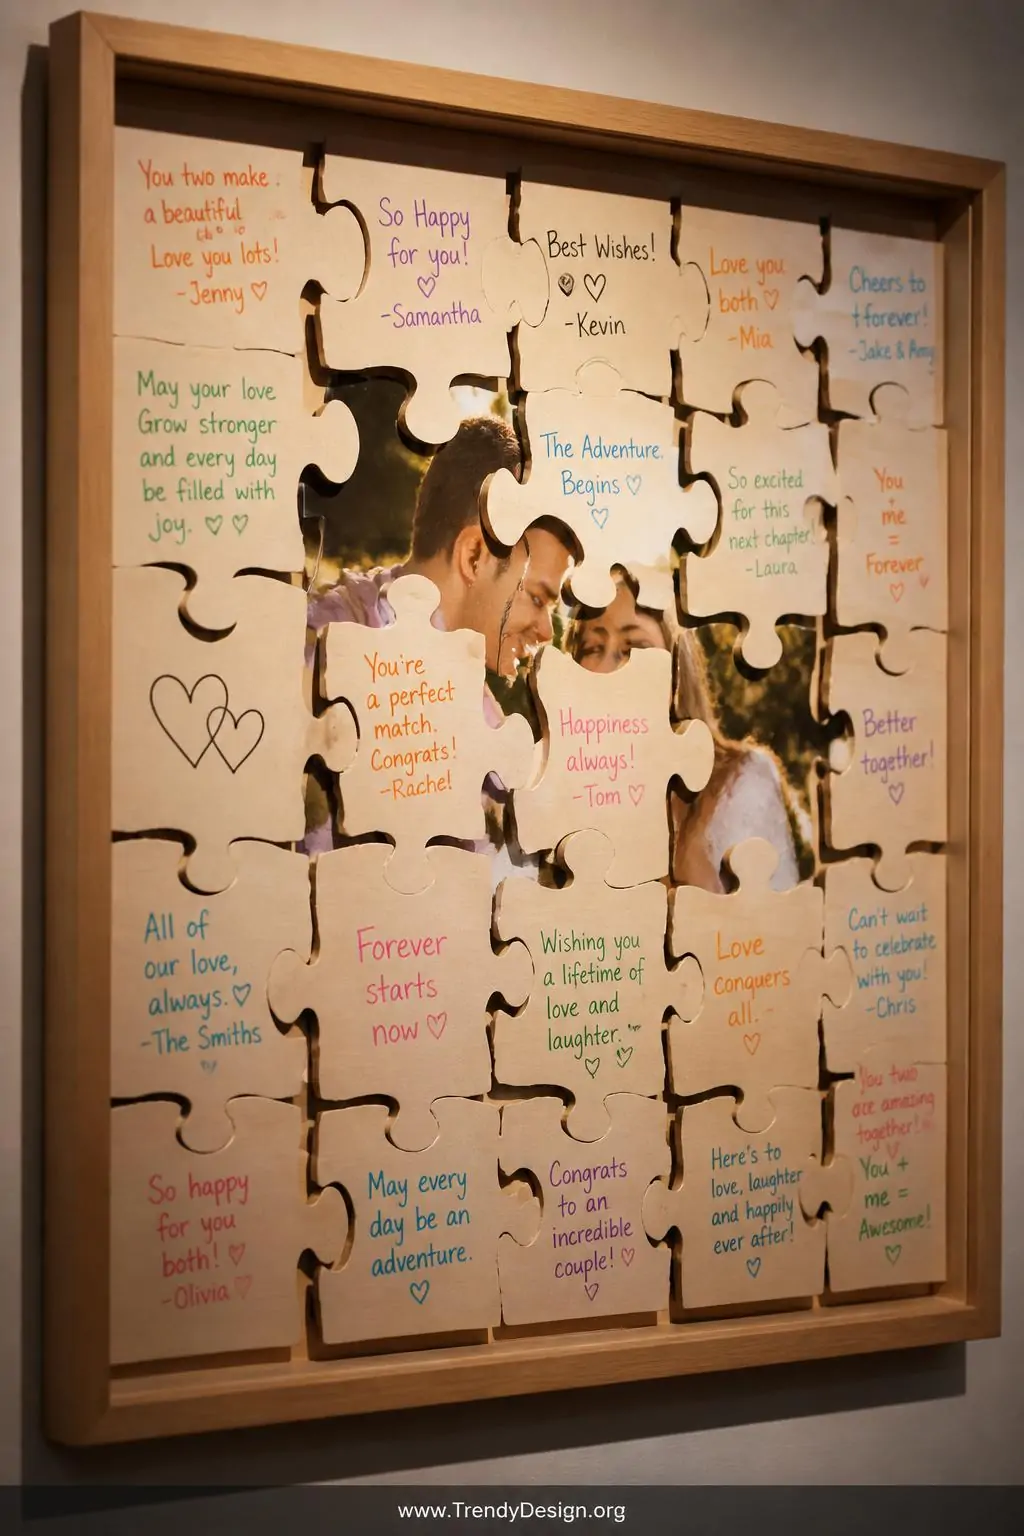 You two make
a beautiful
Love you lots!
-Jenny ♡
So Happy
for you!
♡
-Samantha
Best Wishes!
♡
-Kevin
Love you
both ♡
-Mia
Cheers to
forever!
-Jake & Amy
May your love
Grow stronger
and every day
be filled with
joy. ♡ ♡
The Adventure
Begins ♡
♡
So excited
for this
next chapter!
-Laura
You
+
me
=
Forever
♡
You're
a perfect
match.
Congrats!
-Rachel
Happiness
always!
-Tom ♡
Better
together!
♡
All of
our love,
always. ♡
-The Smiths
Forever
starts
now ♡
Wishing you
a lifetime of
love and
laughter.
♡ ♡
Love
conquers
all.
♡
Can't wait
to celebrate
with you!
-Chris
So happy
for you
both! ♡
-Olivia ♡
May every
day be an
adventure.
♡
Congrats
to an
incredible
couple! ♡
♡
Here's to
love, laughter
and happily
ever after!
♡
You two
are amazing
together!
You +
me =
Awesome!
♡
www.TrendyDesign.org